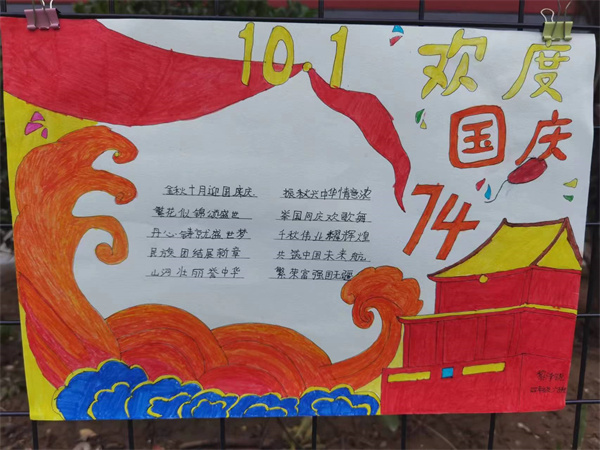 10.1
欢度
国庆
74
金秋十月迎国庆
振秋兴中华情意浓
繁花似锦颂盛世
举国同庆欢歌舞
丹心铸就盛世梦
千秋伟业耀辉煌
民族团结展新章
共筑中国未来航
山河壮丽誉中华
繁荣富强国无疆